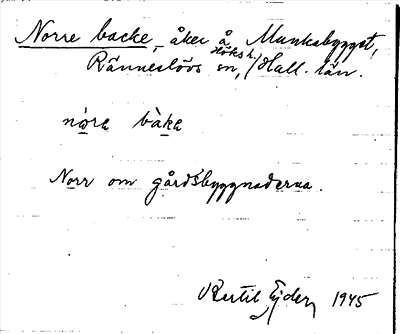 Norre backe, åker å Munkabygget,
Ränneslövs sn, Höks h / Hall. län.
nǫra bàka
Norr om gårdsbyggnaderna.
Bertil Ejder 1945